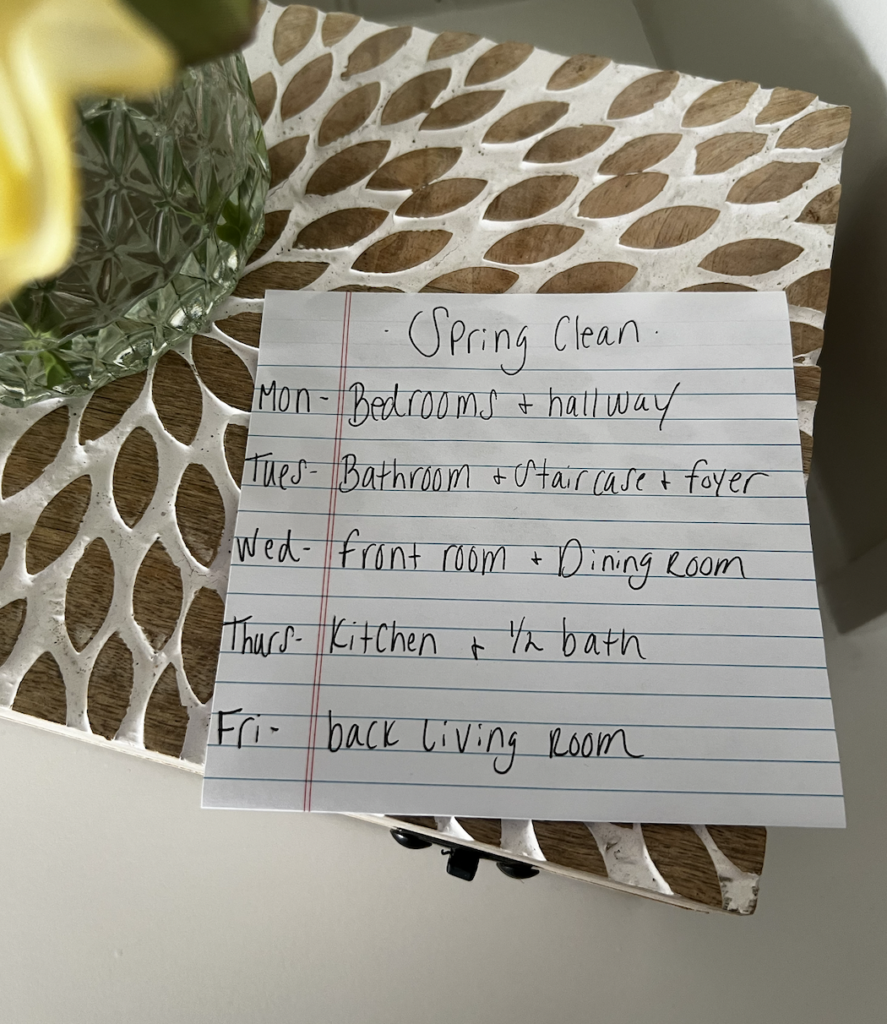 · Spring Clean ·
Mon- Bedrooms + hallway
Tues- Bathroom + Staircase + foyer
Wed- front room + Dining Room
Thurs- Kitchen + 1/2 bath
Fri- back living Room